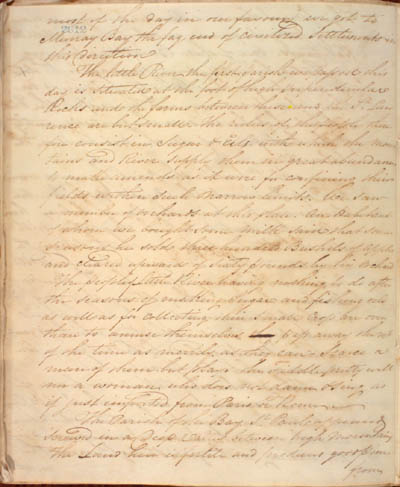 most of the day in our favour, we got to
Murray Bay the fag end of Settlements in
this direction
The little River the first parish we passed this
day is situated at the foot of high
Rocks and the farms between these and the St. Law
rence are but small. The riches of this people there
fore consist in Sugar & Eels with which the moun
tains and River supply them in great abundance
to make amends as it were for confining their
fields within such narrow limits. We saw
a number of orchards at this place. An Habitant
of whom we bought some fruit said that some
seasons he sold three hundred Bushels of Apples
and cleared upwards of Sixty pounds by his Orchard
The people of little River having nothing to do after
the seasons of making Sugar and fishing eels
as well as for collecting their small Crop are
than to amuse themselves away the rest
of the time as merrily as they can. Scarce a
man of them but plays the fiddle pretty well
nor a woman who does not dance & sing as
if just imported from Paris
The Parish of La Bay St. Paul
in a Deep between high Mountains
the Land here is fertile and produces good
from